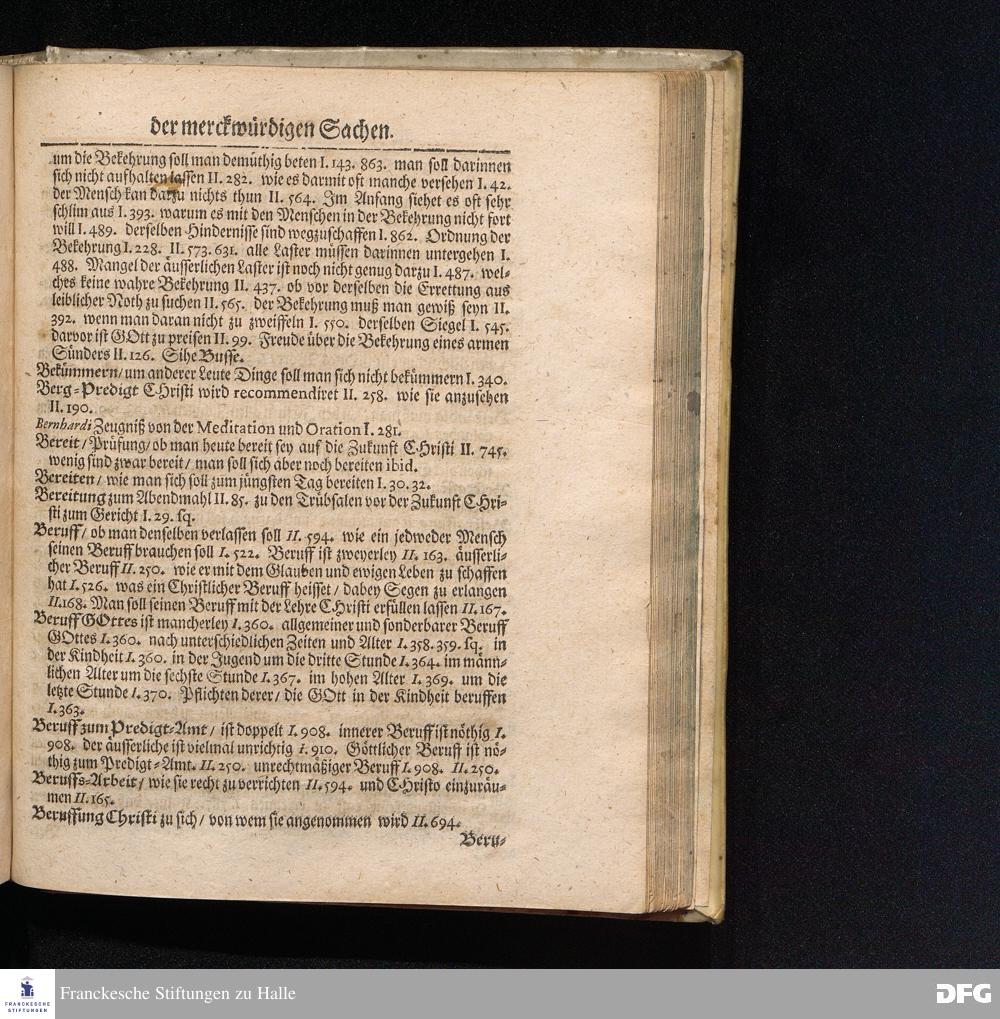 der merckwürdigen Sachen.
um die Bekehrung soll man demüthig beten I. 143. 863. man soll darinnen
sich nicht aufhalten lassen II. 282. wie es darmit oft manche versehen I. 42.
der Mensch kan darzu nichts thun II. 564. Im Anfang siehet es oft sehr
schlim aus I. 393. warum es mit den Menschen in der Bekehrung nicht fort
will I. 489. derselben Hindernisse sind wegzuschaffen I. 862. Ordnung der
Bekehrung I. 228. II. 573. 631. alle Laster müssen darinnen untergehen I.
488. Mangel der äusserlichen Laster ist noch nicht genug darzu I. 487. wel-
ches keine wahre Bekehrung II. 437. ob vor derselben die Errettung aus
leiblicher Noth zu suchen II. 565. der Bekehrung muß man gewiß seyn II.
392. wenn man daran nicht zu zweiffeln I. 550. derselben Siegel I. 545.
darvor ist GOtt zu preisen II. 99. Freude über die Bekehrung eines armen
Sünders II. 126. Sihe Busse.
Bekümmern/ um anderer Leute Dinge soll man sich nicht bekümmern I. 340.
Berg-Predigt CHristi wird recommendiret II. 258. wie sie anzusehen
II. 190.
Bernhardi Zeugniß von der Meditation und Oration I. 281.
Bereit/ Prüfung/ ob man heute bereit sey auf die Zukunft CHristi II. 745.
wenig sind zwar bereit/ man soll sich aber noch bereiten ibid.
Bereiten/ wie man sich soll zum jüngsten Tag bereiten I. 30. 32.
Bereitung zum Abendmahl II. 85. zu den Trübsalen vor der Zukunft CHri-
sti zum Gericht I. 29. sq.
Beruff/ ob man denselben verlassen soll II. 594. wie ein jedweder Mensch
seinen Beruff brauchen soll I. 522. Beruff ist zweyerley II. 163. äusserli-
cher Beruff II. 250. wie er mit dem Glauben und ewigen Leben zu schaffen
hat I. 526. was ein Christlicher Beruff heisset/ dabey Segen zu erlangen
II. 168. Man soll seinen Beruff mit der Lehre CHristi erfüllen lassen II. 167.
Beruff GOttes ist mancherley I. 360. allgemeiner und sonderbarer Beruff
GOttes I. 360. nach unterschiedlichen Zeiten und Alter I. 358. 359. sq. in
der Kindheit I. 360. in der Jugend um die dritte Stunde I. 364. im männ-
lichen Alter um die sechste Stunde I. 367. im hohen Alter I. 369. um die
letzte Stunde I. 370. Pflichten derer/ die GOtt in der Kindheit beruffen
I. 363.
Beruff zum Predigt-Amt/ ist doppelt I. 908. innerer Beruff ist nöthig I.
908. der äusserliche ist vielmal unrichtig I. 910. Göttlicher Beruff ist nö-
thig zum Predigt-Amt. II. 250. unrechtmäßiger Beruff I. 908. II. 250.
Beruffs-Arbeit/ wie sie recht zu verrichten II. 594. und CHristo einzuräu-
men II. 165.
Beruffung Christi zu sich/ von wem sie angenommen wird II. 694.
Beru-
FRANCKESCHE
STIFTUNGEN
Franckesche Stiftungen zu Halle
DFG